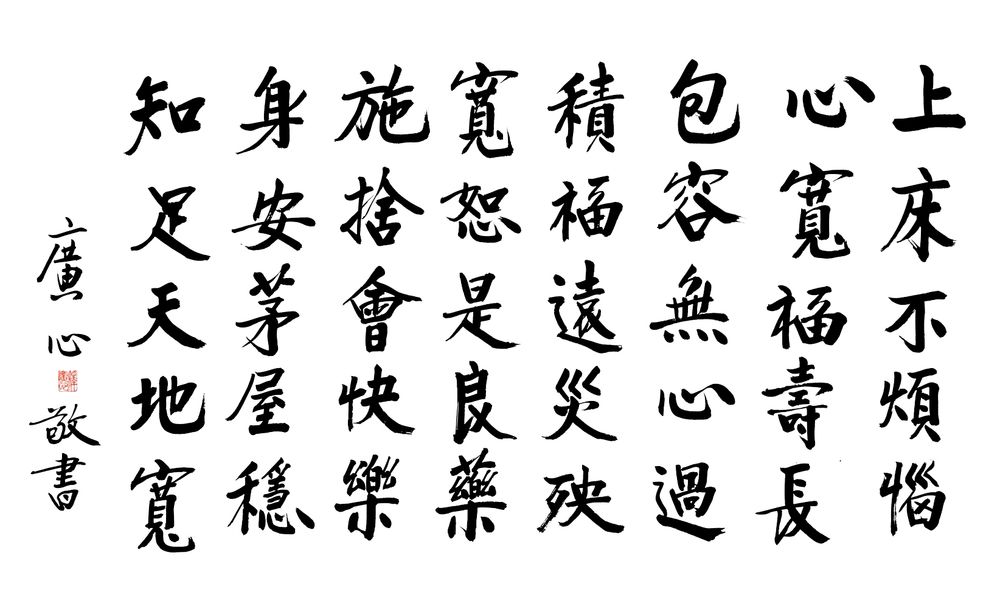 上床不煩惱
心寬福壽長
包容無心過
積福遠災殃
寬恕是良藥
施捨會快樂
身安茅屋穩
知足天地寬
廣心敬書